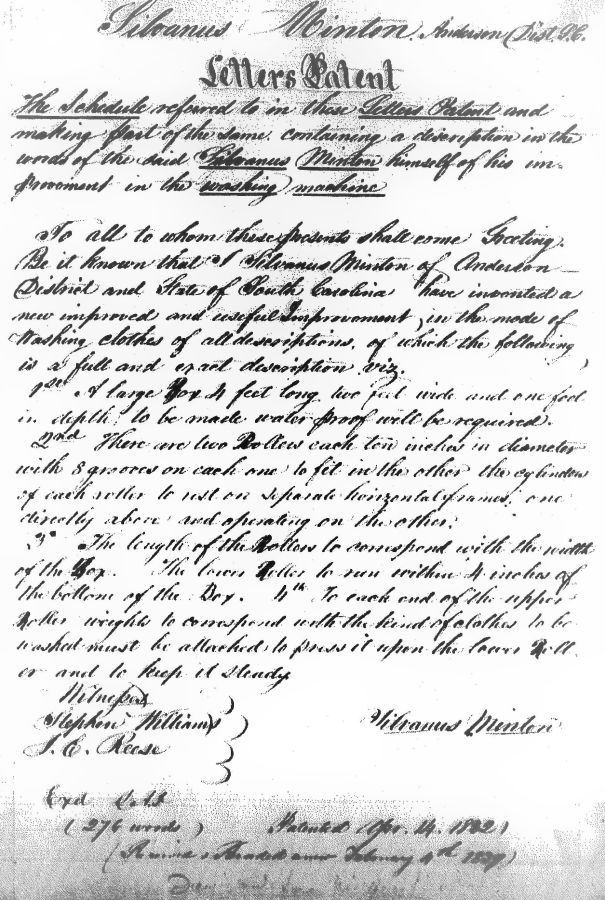 Silvanus Minton. Anderson Dist. S.C.
Letters Patent
The Schedule refered to in these Letters Patent and
making part of the same, containing a discription in the
words of the said Silvanus Minton himself of his im-
provement in the washing machine
To all to whom these presents shall come Greeting,
Be it known that I Silvanus Minton of Anderson
District and State of South Carolina have invented a
new improved and useful Improvement, in the mode of
Washing clothes of all descriptions, of which the following
is a full and exact description, viz.
1st A large Box 4 feet long, two feet wide and one foot
in depth, to be made water proof will be required.
2nd There are two Rollers each ten inches in diameter
with 8 grooves on each one to fit in the other the cylinders
of each roller to rest on separate horizontal frames, one
directly above and operating on the other;
3d The length of the Rollers to correspond with the width
of the Box. The lower Roller to run within 4 inches of
the bottom of the Box. 4th To each end of the upper
Roller weights to correspond with the kind of clothes to be
washed must be attached to press it upon the lower Roll
er and to keep it steady.
Witnesses
Stephen Williams
Silvanus Minton
J. E. Reese
Exd
(276 words) Patented Apr. 14. 1802)
February 4th